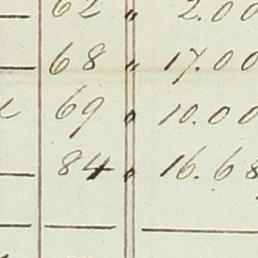 62 " 2.00
68 " 17.00
69 " 10.00
84 " 16.68